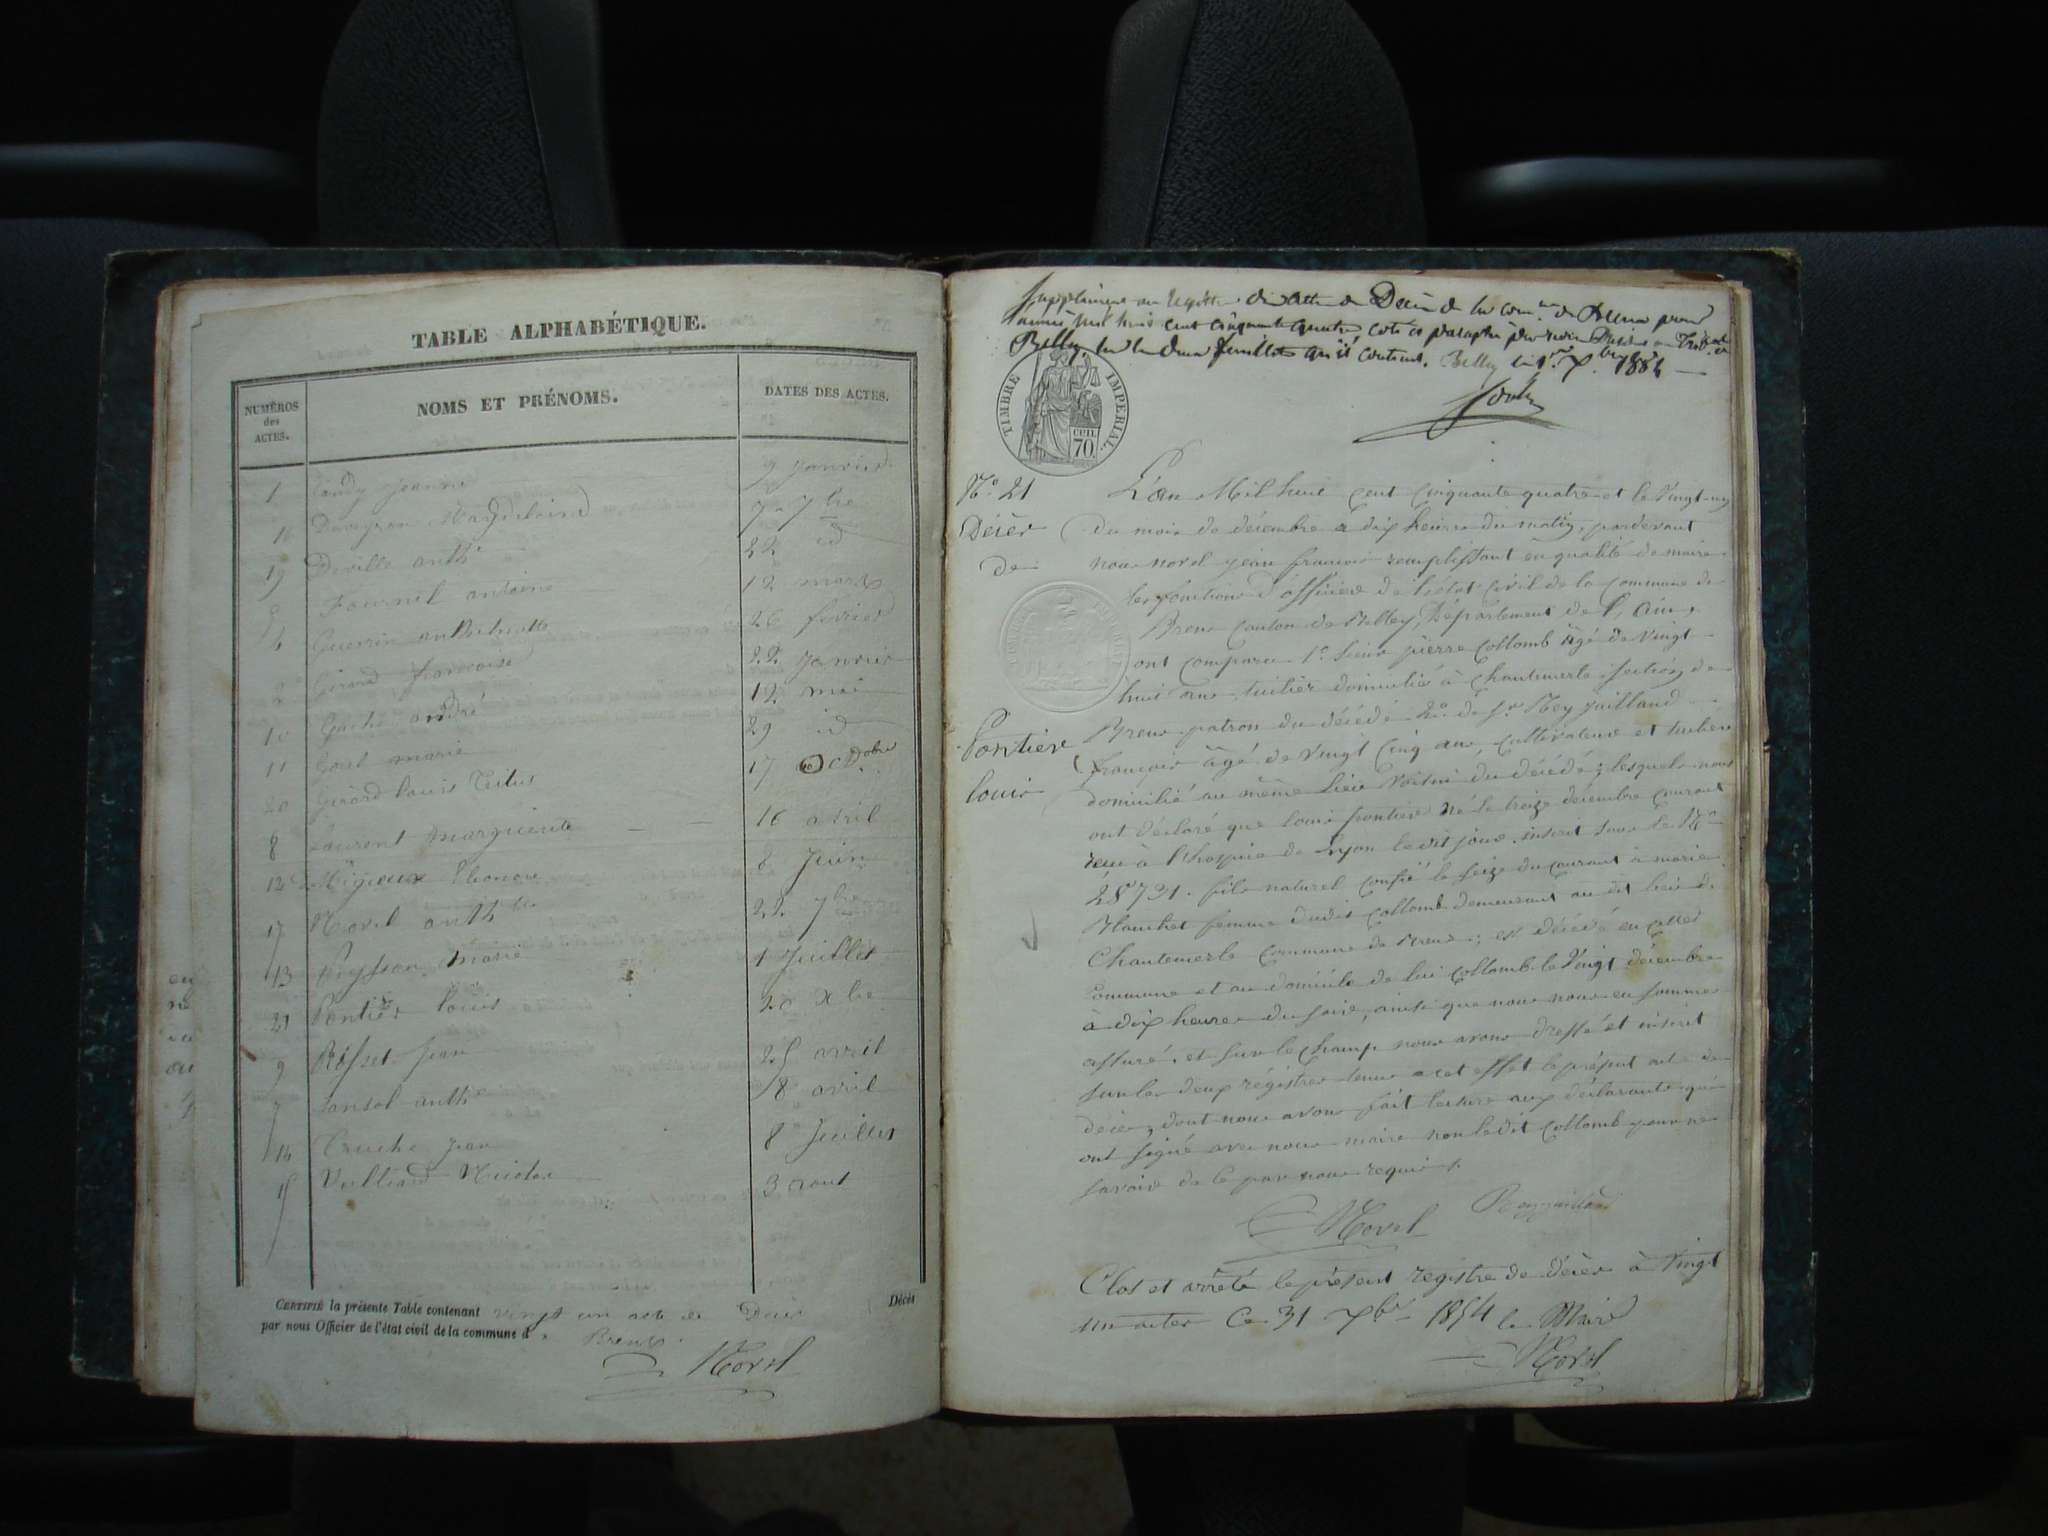 TABLE ALPHABÉTIQUE.
NUMÉROS des ACTES.
NOMS ET PRÉNOMS.
DATES DES ACTES.
1 Jeanne 9 Janvier
16 Magdelaine 7 7bre
19 Deville anth 22 id
5 Fournel antoine 12 mars
4 Guerrin anthelmette 26 fevrier
2 Girard francoise 22 Janvier
10 andré 12 mai
11 marie 29 id
20 Girard louis Titus 17 Octobre
8 Laurent marguerite 16 avril
12 Migieux Eleonore 8 Juin
17 Morel anth 22 7bre
13 Peysson marie 1 Juillet
21 Pontier louis 20 xbre
9 Rosset Jean 25 avril
7 anth 18 avril
14 Truche Jean 8 Juillet
15 Vulliard Nicolas 3 aout
Décès
CERTIFIÉ la présente Table contenant vingt un acte de Décès
par nous Officier de l'état civil de la commune d Brens.
Morel
Supplément au registre des actes de Décès de la com.ne de Brens pour
l'année mil huit cent cinquante quatre coté et paraphé par nous Président au Tribunal de
Belley, sur les deux feuillets qu'il contient. Belley le 1er
TIMBRE IMPERIAL
CEN. 70.
N° 21
Décès
de
Pontière
louis
L'an Mil huit cent cinquante quatre et le Vingt-un
du mois de décembre à dix heures du matin, pardevant
nous morel jean francois remplissant en qualité de maire
les fonctions d'officier de l'état civil de la commune de
Brens Canton de Belley, Département de l'ain,
ont comparu 1° Sieur pierre Collomb âgé de vingt
huit ans tuilier domicilié à Chantemerle section de
Brens patron du décédé 2° de Sr Rey jailland
francois âgé de vingt cinq ans, cultivateur et tuilier
domicilié au même lieu voisin du décédé; lesquels nous
ont déclaré que louis pontière né le treize décembre courant
reçu à l'hospice de Lyon ledit jour inscrit sous le N°
28791. fils naturel confié le seize du courant à marie
Blanchet femme dudit Collomb demeurant au dit lieu de
Chantemerle commune de Brens; est décédé en cette
commune et au domicile de lui Collomb le Vingt décembre
à dix heures du soir, ainsi que nous nous en sommes
assuré. et sur le champ nous avons dressé et inscrit
sur les deux régistres tenus a cet effet le présent acte de
décès, dont nous avons fait lecture aux déclarants qui
ont signé avec nous maire non ledit Collomb pour ne
savoir de ce par nous requis.
Morel Reyjailland
Clos et arrêté le présent registre de décès à vingt
un actes Ce 31 Xbre 1854 le Maire
Morel